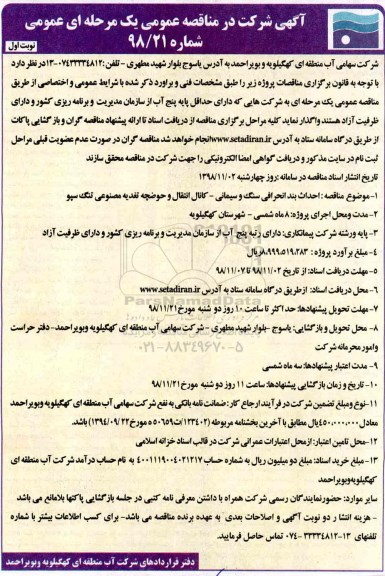 آگهی شرکت در مناقصه عمومی یک مرحله ای عمومی
شماره ۹۸/۲۱
نوبت اول
شرکت سهامی آب منطقه ای کهگیلویه و بویراحمد به آدرس یاسوج بلوار شهید مطهری - تلفن: ۱۳-۰۷۴۳۳۳۳۴۸۱۲ در نظر دارد
با توجه به قانون برگزاری مناقصات پروژه زیر را طبق مشخصات فنی و برآورد ذکر شده با شرایط عمومی و اختصاصی از طریق
مناقصه عمومی یک مرحله ای به شرکت هایی که دارای حداقل پایه پنج آب از سازمان مدیریت و برنامه ریزی کشور و دارای
ظرفیت آزاد هستند واگذار نماید کلیه مراحل برگزاری مناقصه از دریافت اسناد تا ارائه پیشنهاد مناقصه گران و بازگشایی پاکات
از طریق درگاه سامانه ستاد به آدرس www.setadiran.ir انجام خواهد شد مناقصه گران در صورت عدم عضویت قبلی مراحل
ثبت نام در سایت مذکور و دریافت گواهی امضا الکترونیکی را جهت شرکت در مناقصه محقق سازند
تاریخ انتشار اسناد مناقصه در سامانه :روز چهارشنبه ۱۳۹۸/۱۱/۰۲
۱- موضوع مناقصه : احداث بند انحرافی سنگ و سیمانی - کانال انتقال و حوضچه تغذیه مصنوعی لنگ سپو
۲- مدت ومحل اجرای پروژه: ۸ ماه شمسی - شهرستان کهگیلویه
۳- پایه ورشته شرکت پیمانکاری: دارای رتبه پنج آب از سازمان مدیریت و برنامه ریزی کشور و دارای ظرفیت آزاد
۴- مبلغ برآورد پروژه : ۸،۹۹۹،۵۱۹،۲۸۳ ریال
۵- مهلت دریافت اسناد: از تاریخ ۹۸/۱۱/۰۲ تا ۹۸/۱۱/۰۷
۶- محل دریافت اسناد: ازطریق درگاه سامانه ستاد به آدرس www.setadiran.ir
۷- مهلت تحویل پیشنهادها: حداکثر تا ساعت ۱۰ روز دو شنبه مورخ ۹۸/۱۱/۲۱
۸- محل تحویل و بازگشایی: یاسوج - بلوار شهید مطهری - شرکت سهامی آب منطقه ای کهگیلویه وبویراحمد- دفتر حراست
وامور محرمانه شرکت
۹- مدت اعتبار پیشنهادها: سه ماه شمسی
۱۰- تاریخ و زمان بازگشایی پیشنهادها: ساعت ۱۱ روز دو شنبه مورخ ۹۸/۱۱/۲۱
۱۱- نوع ومبلغ تضمین شرکت در فرآیند ارجاع کار: ضمانت نامه بانکی به نفع شرکت سهامی آب منطقه ای کهگیلویه وبویراحمد
معادل ۴۵۰،۰۰۰،۰۰۰ ریال مطابق با آخرین بخشنامه مربوطه (۱۲۳۴۰۲/ت۵۰۶۵۹ ه مورخ ۱۳۹۴/۰۹/۲۲) باشد.
۱۲- محل تامین اعتبار: ازمحل اعتبارات عمرانی در قالب اسناد خزانه اسلامی
۱۳- مبلغ خرید اسناد: مبلغ دو میلیون ریال به شماره حساب ۴۰۰۱۱۱۹۰۰۴۰۲۱۲۱۷ به نام حساب درآمد شرکت آب منطقه ای
کهگیلویه وبویراحمد
سایر موارد: حضور نمایندگان رسمی شرکت همراه با داشتن معرفی نامه کتبی در جلسه بازگشایی پاکتها بلامانع می باشد
- هزینه انتشار دو نوبت آگهی و اصلاحات بعدی به عهده برنده مناقصه می باشد- برای کسب اطلاعات بیشتر با شماره
تلفنهای ۱۳-۳۳۳۳۴۸۱۲-۰۷۴ تماس حاصل فرمایید.
دفتر قراردادهای شرکت آب منطقه ای کهگیلویه وبویراحمد
ParsNamadData
۰۲۱-۸۸۳۴۹۶۷۰-۵